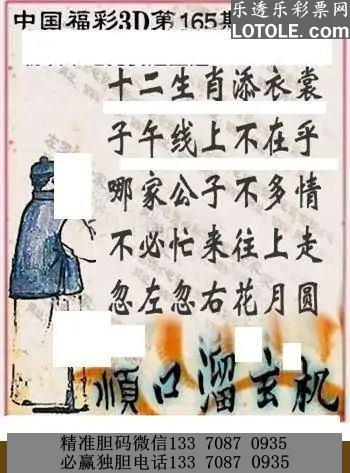 中国福彩3D第165期
乐透乐彩票网
LOTOLE.COM
十二生肖添衣裳
子午线上不在乎
哪家公子不多情
不必忙来往上走
忽左忽右花月圆
顺口溜玄机
精准胆码微信133 7087 0935
必赢独胆电话133 7087 0935